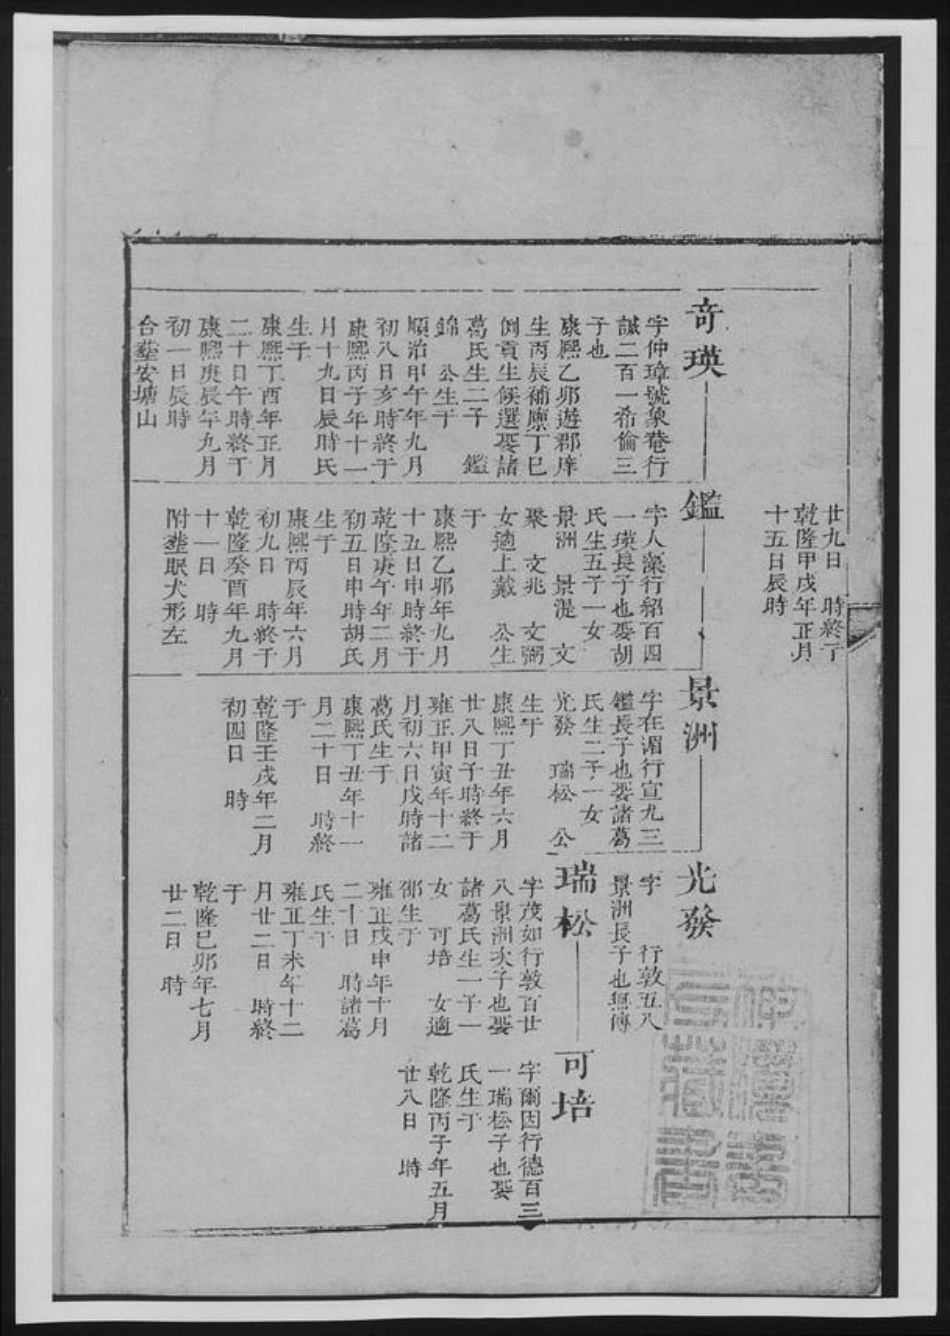 廿九日　時終于
乾隆甲戌年正月
十五日辰時
奇瑛
字仲璋號象菴行
誠二百一希倫三
子也
康熙乙卯遊郡庠
生丙辰補廩丁巳
例貢生候選娶諸
葛氏生二子　鑑
錦　公生于
順治甲午年九月
初八日亥時終于
康熙丙子年十一
月十九日辰時氏
生于
康熙丁酉年正月
二十日午時終于
康熙庚辰年九月
初一日辰時
合塟安塘山
鑑
字人藻行紹百四
一瑛長子也娶胡
氏生五子一女
景洲　景湜　文
聚　文兆　文弼
女適上戴　公生
于
康熙乙卯年九月
十五日申時終于
乾隆庚午年二月
初五日申時胡氏
生于
康熙丙辰年六月
初九日　時終于
乾隆癸酉年九月
十一日　時
附塟眠犬形左
景洲
字在湄行宣九三
鑑長子也娶諸葛
氏生二子一女
光發　瑞松　公
生于
康熙丁丑年六月
廿八日子時終于
雍正甲寅年十二
月初六日戌時諸
葛氏生于
康熙丁丑年十一
月二十日　時終
于
乾隆壬戌年二月
初四日　時
光發
字　　行敦五八
景洲長子也無傳
瑞松
字茂如行敦百廿
八景洲次子也娶
諸葛氏生一子一
女　可培　女適
邵生于
雍正戊申年十月
二十日　時諸葛
氏生于
雍正丁未年十二
月廿二日　時終
于
乾隆己卯年七月
廿二日　時
可培
字爾因行德百三
一瑞松子也娶
氏生于
乾隆丙子年五月
廿八日　時